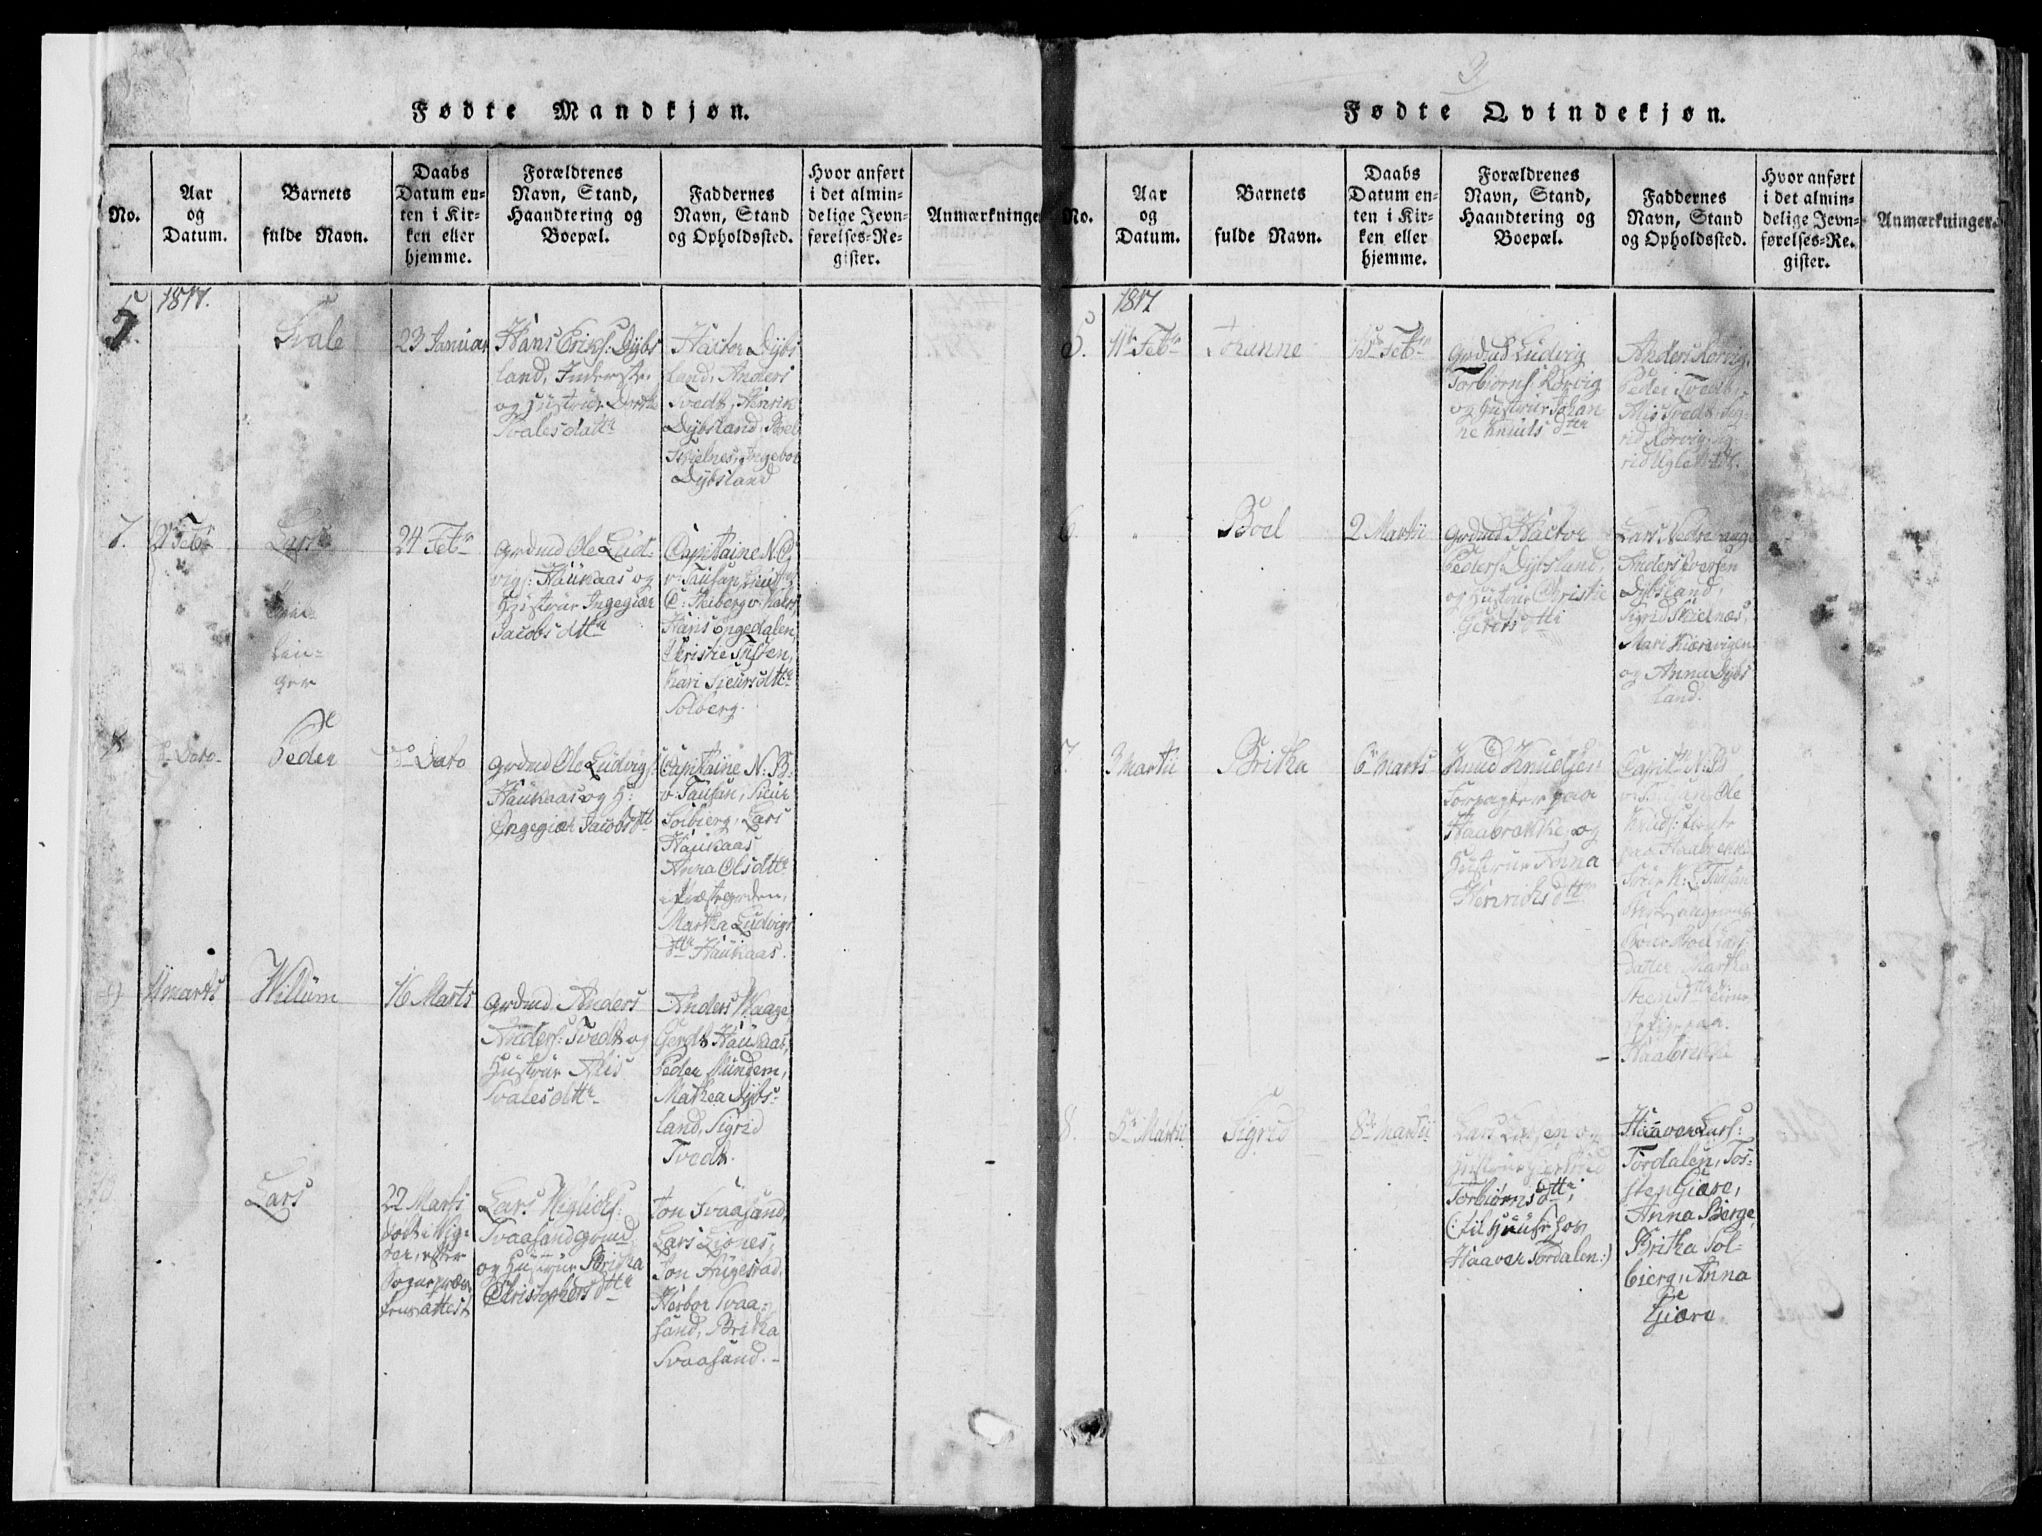 Fødte Mandkjøn.
No.
Aar
og
Datum.
Barnets
fulde Navn.
Daabs
Datum en-
ten i Kir-
ken eller
hjemme.
Forældrenes
Navn, Stand,
Haandtering og
Boepæl.
Faddernes
Navn, Stand
og Opholdssted.
Hvor anført
i det almin-
delige Jevn-
førelses-Re-
gister.
Anmærkninger
1817.
5.
Svale
23 Januar
Hans Eriks: Dybs
land, Inderste
og Hustrue Dorthe
Svalesdattr
Hactor Dybs
land, Anders
Tvedt, Henrik
Dybsland, Boel
Skielnes, Ingebor
Dybsland
7.
21 Febr
Lars
Tvil-
lin-
ger
24 Febr
Grdmd Ole Lud-
vigs: Haukaas og
Hustrue Ingegiær
Jacobsdttr
Capitaine N. B.
v: Tausan,
Hans Engedalen,
Kari Siursdttr
Solberg.
8
d. Dato
Peder
do Dato
Grdmd Ole Ludvigs:
Haukaas og H:
Ingegiær Jacobsdtt
Capitaine N: B:
v: Tausan, Siur
Solbierg, Lars
Haukaas
Anna Olsdttr
i Præstegorden,
Martha Ludvigs
dttr Haukaas.
9
11 Marts
Willum
16 Marts
Grdmd Anders
Anders: Tvedt og
Hustrue Alis
Svalesdttr
Anders Waage
Gerdt Haukaas,
Peder Mundem,
Mathea Dybs-
land, Sigrid
Tvedt.
10.
Lars
22 Marts
døbt i Vig-
øer, efter
Sognepræs-
tens attest
Lars Wiglids:
Svaasand grmd
og Hustrue Britha
Christophersdttr
Jon Svaasand,
Lars Lionæs,
Jon Augestad,
Herbor Svaa-
sand, Britha
Svaasand.
3
Fødte Qvindekjøn.
No.
Aar
og
Datum.
Barnets
fulde Navn.
Daabs
Datum en-
ten i Kir-
ken eller
hjemme.
Forældrenes
Navn, Stand,
Haandtering og
Boepæl.
Faddernes
Navn, Stand
og Opholdssted.
Hvor anført
i det almin-
delige Jevn-
førelses-Re-
gister.
Anmærkninger.
1817
5.
11te Febr
Johanne
15de Febr
Grdmd Ludvig
Torbiørns: Rørvig
og Hustrue Johan-
ne Knudsdttr
Anders Rørvig,
Peder Tvedt,
Alis Tvedt, Sig-
rid Rørvig, Sig-
rid Uglenæs.
6.
Boel
2 Martii
Grdmd Hactor
Peders: Dybsland,
og Hustrue Christie
Gertsdtt
Lars Nedrevaage
Anders Iversen
Dybsland,
Sigrid Skielnæs,
Mari Kierevigen
og Anna Dybs
land.
7.
3 Martii
Britha
6te Marts
Knud Knudsen
Forpagter paa
Haabrække, og
Hustrue Anna
Henrichsdttr
Capitn N: B:
v: Tausan, Ole
Knuds:
paa Haabrække
Tausan
Boel Lars-
datter, Martha
Steensdttr
paa
Haabrække
8.
5te Martii
Sigrid
8de Martii
Lars Larsen og
Hustrue Giertrud
Torbiørnsdtt
(: til Huus hos
Haaver Tordalen :)
Haaver Lars:
Tordalen, Tos-
sten Giære,
Anna Berge,
Britha Sol-
bierg, Anna
Giære